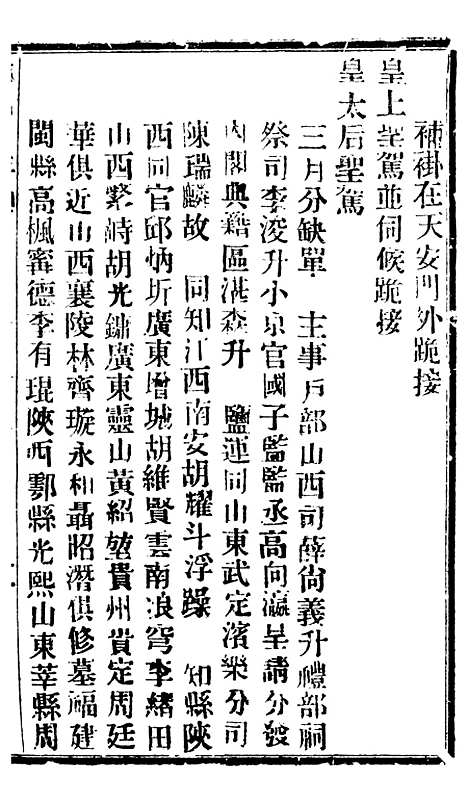 補褂在天安門外跪接
皇上聖駕並伺候跪接
皇太后聖駕
三月分缺單　主事戶部山西司薛尙義升禮部祠
祭司李浚升小京官國子監監丞高向瀛呈請分發
內閣典籍區湛森升　鹽運同山東武定濱樂分司
陳瑞麟故　同知江西南安胡耀斗浮躁　知縣陝
西同官邱炳炘廣東增城胡維賢雲南浪穹李緒田
山西繁峙胡光鏞廣東靈山黃紹堃貴州貴定周廷
華俱近山西襄陵林齊璇永和聶昭潛俱修墓福建
閩縣高楓甯德李有琨陝西鄠縣光熙山東莘縣周